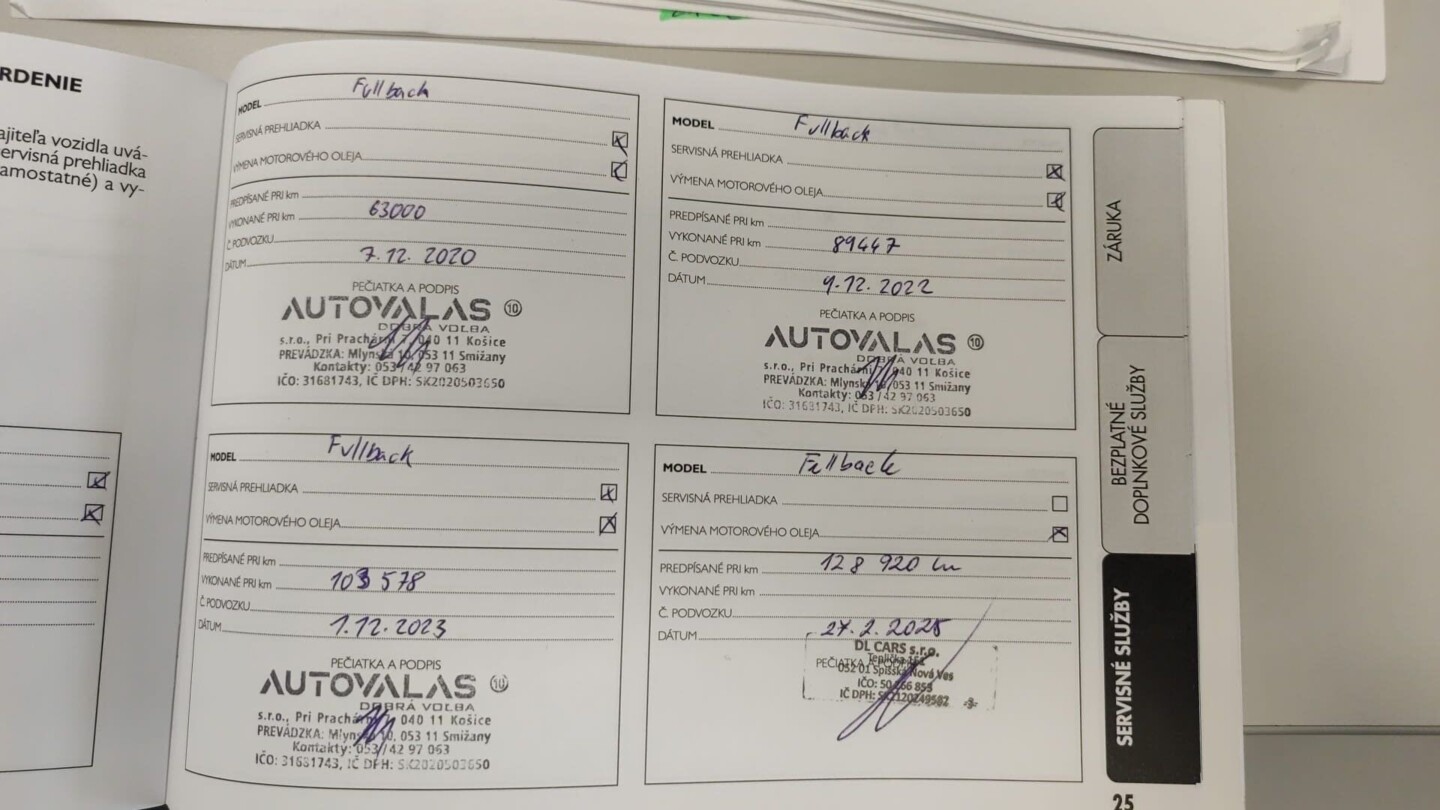 RDENIE
ajiteľa vozidla uvá-
ervisná prehliadka
amostatné) a vy-
MODEL Fullback
SERVISNÁ PREHLIADKA
VÝMENA MOTOROVÉHO OLEJA
PREDPÍSANÉ PRI km
VYKONANÉ PRI km 63000
Č. PODVOZKU
DÁTUM 7.12.2020
PEČIATKA A PODPIS
AUTOVALAS 10
DOBRÁ VOĽBA
s.r.o., Pri Prachárni 7, 040 11 Košice
PREVÁDZKA: Mlynská 10, 053 11 Smižany
Kontakty: 053/42 97 063
IČO: 31681743, IČ DPH: SK2020503650
MODEL Fullback
SERVISNÁ PREHLIADKA
VÝMENA MOTOROVÉHO OLEJA
PREDPÍSANÉ PRI km
VYKONANÉ PRI km 89447
Č. PODVOZKU
DÁTUM 9.12.2022
PEČIATKA A PODPIS
AUTOVALAS 10
DOBRÁ VOĽBA
s.r.o., Pri Prachárni 7, 040 11 Košice
PREVÁDZKA: Mlynská 10, 053 11 Smižany
Kontakty: 053/42 97 063
IČO: 31681743, IČ DPH: SK2020503650
MODEL Fullback
SERVISNÁ PREHLIADKA
VÝMENA MOTOROVÉHO OLEJA
PREDPÍSANÉ PRI km
VYKONANÉ PRI km 103 578
Č. PODVOZKU
DÁTUM 1.12.2023
PEČIATKA A PODPIS
AUTOVALAS 10
DOBRÁ VOĽBA
s.r.o., Pri Prachárni 7, 040 11 Košice
PREVÁDZKA: Mlynská 10, 053 11 Smižany
Kontakty: 053/42 97 063
IČO: 31681743, IČ DPH: SK2020503650
MODEL Fullback
SERVISNÁ PREHLIADKA
VÝMENA MOTOROVÉHO OLEJA
PREDPÍSANÉ PRI km 128 920 km
VYKONANÉ PRI km
Č. PODVOZKU
DÁTUM 27.2.2025
DL CARS s.r.o.
Teplička
PEČIATKA A
052 01 Spišská Nová Ves
IČO:
IČ DPH:
-3-
ZÁRUKA
BEZPLATNÉ
DOPLNKOVÉ SLUŽBY
SERVISNÉ SLUŽBY
25